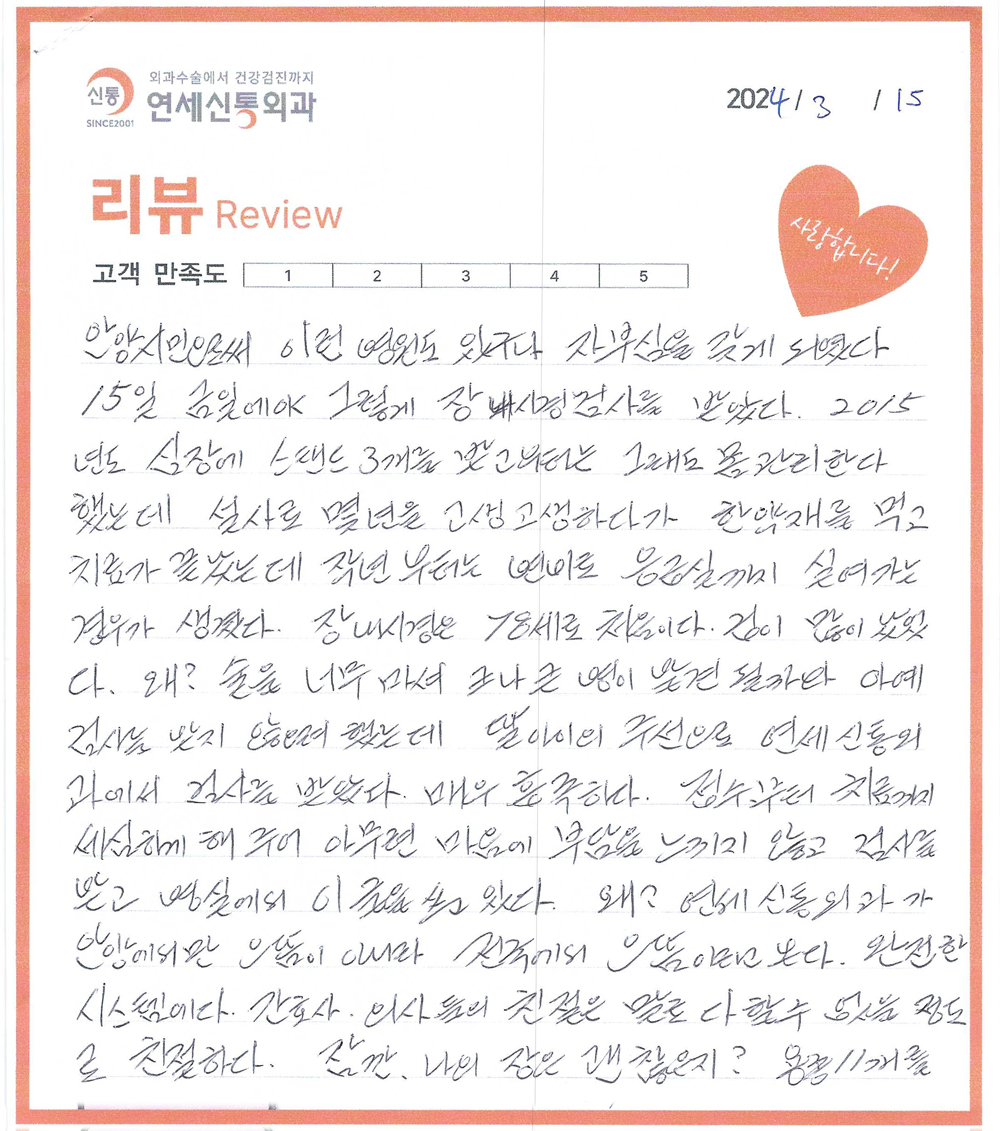 외과수술에서 건강검진까지
신통
SINCE2001
연세신통외과
2024 / 3 / 15
리뷰 Review
사랑합니다!
고객 만족도 1 2 3 4 5
안양시민으로써 이런 병원도 있구나 자부심을 갖게 되였다
15일 금일에야 그렇게 장내시경검사를 받았다. 2015
년도 심장에 스탠드 3개를 받고부터는 그래도 몸관리한다
했는데 설사로 몇년을 고생고생하다가 한약재를 먹고
치료가 끝났는데 작년부터는 변비로 응급실까지 실여가는
경우가 생겼다. 장내시경은 78세로 처음이다. 겁이 많이 났었
다. 왜? 술을 너무 마셔 크나큰 병이 발견 될까봐 아예
검사를 받지 않으려 했는데 딸아이의 주선으로 연세신통외
과에서 검사를 받았다. 매우 흡족하다. 접수부터 치료까지
세심하게 해 주어 아무련 마음에 부담을 느끼지 않고 검사를
받고 병실에서 이 글을 쓰고 있다. 왜? 연세신통외과가
안양에서만 으뜸이 아니라 전국에서 으뜸이라고 본다. 완전한
시스템이다. 간호사. 의사들의 친절은 말로 다 할수 없을 정도
로 친절하다. 잠깐. 나의 장은 괜찮은지? 용종11개를